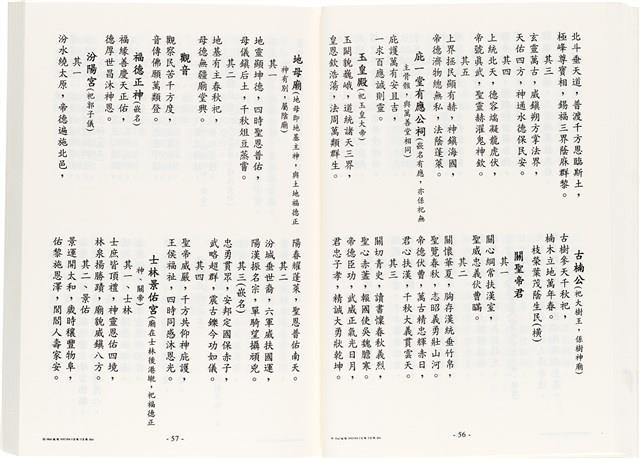 北斗垂天道，普渡千方恩臨斯土，
極峰尊寶相，錫福三界蔭庥群黎。
其三
玄靈萬古，威鎮朔方掌法界，
天佑四方，神通永德保民安。
其四
上統北天，德容端凝龍虎伏，
帝號真武，聖靈赫濯鬼神欽。
其五
上界拯民顯有赫，神鎮海國，
帝德濟物總無私，法蔭蓬萊。
庇一堂有應公祠(嵌名有應，亦係祀無
主骨骸，與萬善堂相同)
庇護萬有安且吉，
一求百應誠則靈。
玉皇殿(祀玉皇大帝)
玉闕貌巍峨，道統諸天三界，
皇恩欽浩蕩，法周萬類群生。
古楠公(祀大樹王，係樹神廟)
古樹參天千秋祀，
楠木立地萬年春。
枝榮葉茂蔭生民(橫)
關聖帝君
其一
關心綱常扶漢室，
聖威忠義伏曹瞞。
其二
關懷華夏，胸存漢統垂竹帛，
聖覽春秋，志昭義勇壯山河。
帝德伏曹，萬古精忠輝赤日，
君心扶漢，千秋大義貫雲天。
其三
關切青史，讀書懍春秋義烈，
聖心赤堇，報國使吳魏膽寒。
帝德臣功，武威正氣光日月，
君忠子孝，精誠大勇狀乾坤。
- 56 -
地母廟(地母即地基主神，與土地福德正
神有別，屬陰廟)
其一
地靈顯坤德，四時聖恩普佑，
母儀鎮后土，千秋俎豆蒸嘗。
其二
地基有主春秋祀，
母德無疆廟堂興。
觀音
觀察民苦千方度，
音傳佛願萬類登。
福德正神(嵌名)
福緣善慶天正佑，
德厚世昌沐神恩。
汾陽宮(祀郭子儀)
其一
汾水繞太原，帝德遍施北邑，
陽春耀蓬萊，聖恩普佑南天。
其二
汾城垂世裔，六軍威扶國運，
陽漢振名宗，單騎望攝頑兇。
其三(嵌名)
忠勇貫眾，安邦定國保赤子，
武略超群，震古鑠今功如儀。
其四
聖帝威嚴，千方共仰神庇護，
王侯福祉，四時同感沐恩光。
士林景佑宮(廟在士林後港墘，祀福德正
神、關帝)
其一、士林
士庶皆頂禮，神靈恩佑四境，
林泉揚勝蹟，廟貌威鎮八方。
其二、景佑
景運開太和，歲時穰豐物阜，
佑黎施恩澤，閭閻人壽家安。
- 57 -